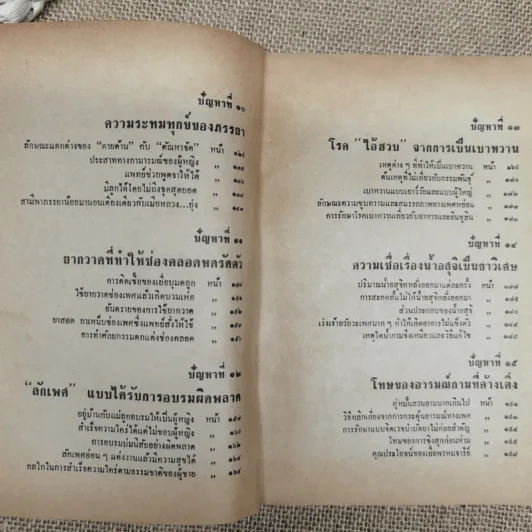 ปัญหาที่ ๑๐
ความระทมทุกข์ของภรรยา
ลักษณะแตกต่างของ "ตายด้าน" กับ "ตัณหาจัด" หน้า
ประสาททางกามารมณ์ของผู้หญิง "
แพทย์ช่วยพูดจาให้ได้ "
มีลูกได้โดยไม่ถึงจุดสุดยอด "
สามีหาภรรยาน้อยมานอนเตียงเดียวกับเมียหลวง...ยุ่ง "
ปัญหาที่ ๑๑
ยากวาดที่ทำให้ช่องคลอดหดรัดตัว
การติดเชื้อของเยื่อบุมดลูก หน้า
ใช้ยากวาดช่องเพศแล้วเกิดบวมเห่อ "
อันตรายของการใช้ยากวาด "
ยาสอด ยาเหน็บช่องเพศซึ่งแพทย์สั่งให้ใช้ "
การทำศัลยกรรมตกแต่งช่องคลอด " ๑๕๑
ปัญหาที่ ๑๒
"ลักเพศ" แบบได้รับการอบรมผิดพลาด
อยู่บ้านกับแม่ถูกอบรมให้เป็นผู้หญิง หน้า
สำเร็จความใคร่ได้แต่ไม่ชอบผู้หญิง "
การอบรมบ่มนิสัยอย่างผิดพลาด "
ลักเพศอ่อน ๆ แต่งงานแล้วมีความสุขได้ "
กลไกในการสำเร็จความใคร่ตามธรรมชาติของผู้ชาย "
ปัญหาที่ ๑๓
โรค "ไอ้สวบ" จากการเป็นเบาหวาน
เหตุต่าง ๆ ที่ทำให้เป็นเบาหวาน หน้า
ต้นเหตุที่ไม่เกี่ยวกับกรรมพันธุ์ "
เบาหวานแบบเยาว์วัยและแบบผู้ใหญ่ "
ลักษณะความซูบทางกามและสมรรถภาพทางเพศหย่อน "
การรักษาโรคเบาหวานเกี่ยวกับอาหารและอินซูลิน "
ปัญหาที่ ๑๔
ความเชื่อเรื่องน้ำอสุจิเป็นยาวิเศษ
ปริมาณน้ำอสุจิหลั่งออกมาแต่ละครั้ง หน้า ๑๗๗
การสะกดกั้นไม่ให้น้ำอสุจิหลั่งออกมา "
ส่วนประกอบของน้ำอสุจิ "
เร่งเร้าอวัยวะเพศมาก ๆ ทำให้เกิดอาการไม่แข็งตัว "
เหตุใดน้ำกามจึงเหนียวและวิธีแก้ไข "
ปัญหาที่ ๑๕
โทษของอารมณ์กามที่ค้างเติ่ง
คู่หมั้นลวนลามมากเกินไป หน้า
วิธีหลีกเลี่ยงจากการกระตุ้นอารมณ์ทางเพศ "
การรักษาแบบจิตเวชบำบัดยาไม่ค่อยสำคัญ "
โทษของการชิงสุกก่อนห่าม "
คุณประโยชน์ของเยื่อพรหมจารีย์ "